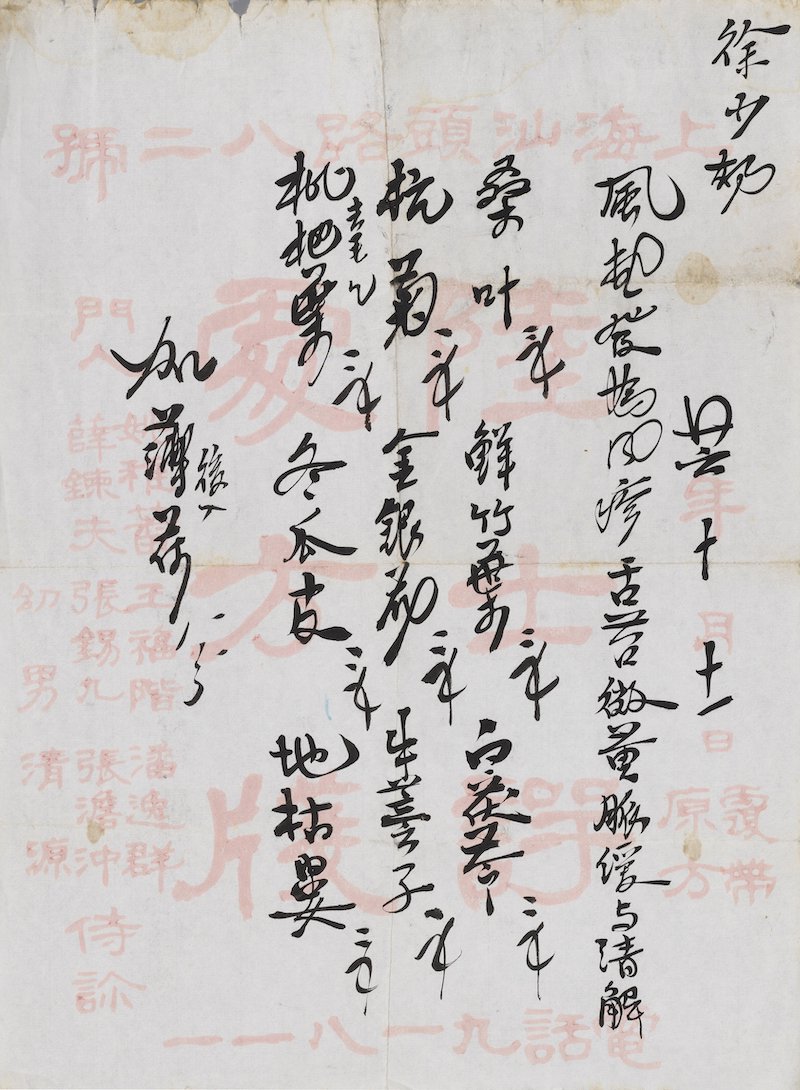 上海汕頭路八二號
徐少
廿六年十月十一日
覆帶原方
風熱發為風疹舌苔微黃脈緩与清解
桑叶二錢 鮮竹葉二錢 白茯苓三錢
杭菊二錢 金銀花二錢 牛蒡子二錢
枇杷葉去毛包三錢 冬瓜皮三錢 地枯蔞三錢
加薄荷後入八分
陸士諤
處方牋
門人
薛鍊夫 王福階 張錫九 潘逸群 張澹沖 侍診
幼男清源
電話九一八一一